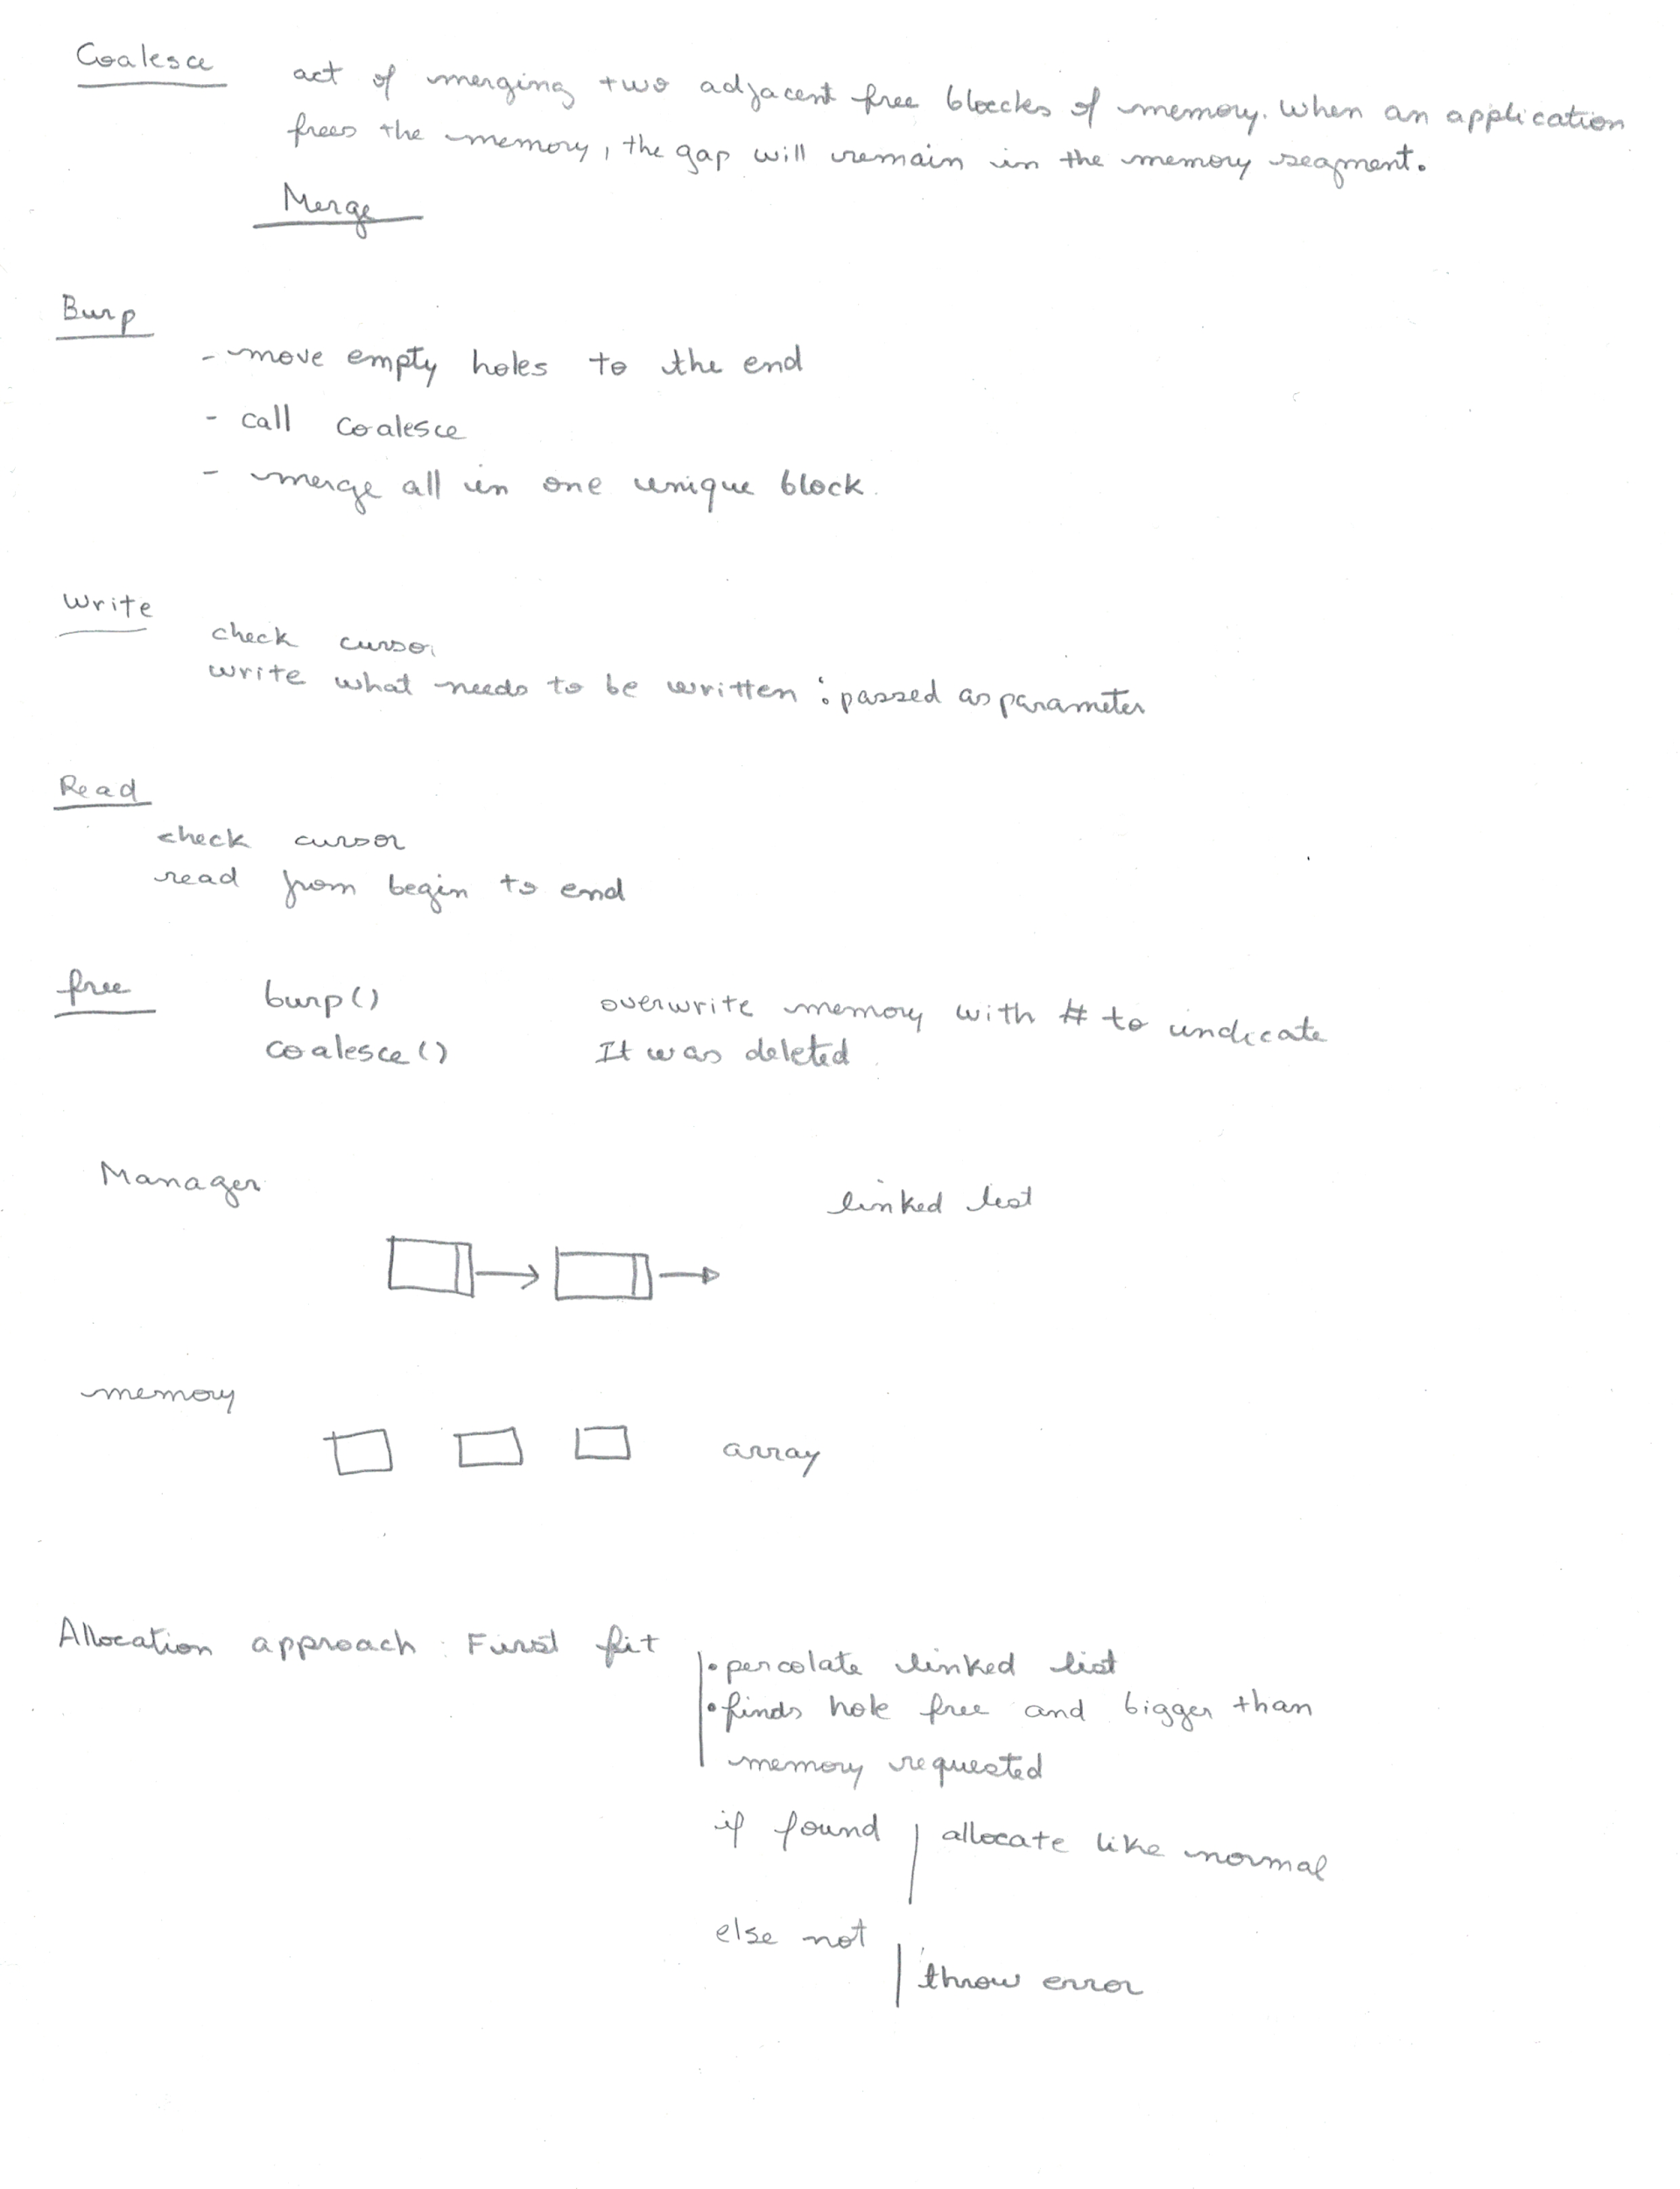 Coalesce
act of merging two adjacent free bloecks of memory. When an application
frees the memory, the gap will remain in the memory seagment.
Merge
Burp
- move empty holes to the end
- call coalesce
- merge all in one unique block.
Write
check cursor
write what needs to be written : passed as parameter
Read
check cursor
read from begin to end
free
burp() overwrite memory with # to indicate
coalesce() It was deleted.
Manager
linked list
memory
array
Allocation approach : First fit
• percolate linked list
• finds hole free and bigger than
memory requested
if found allocate like normal
else not
throw error